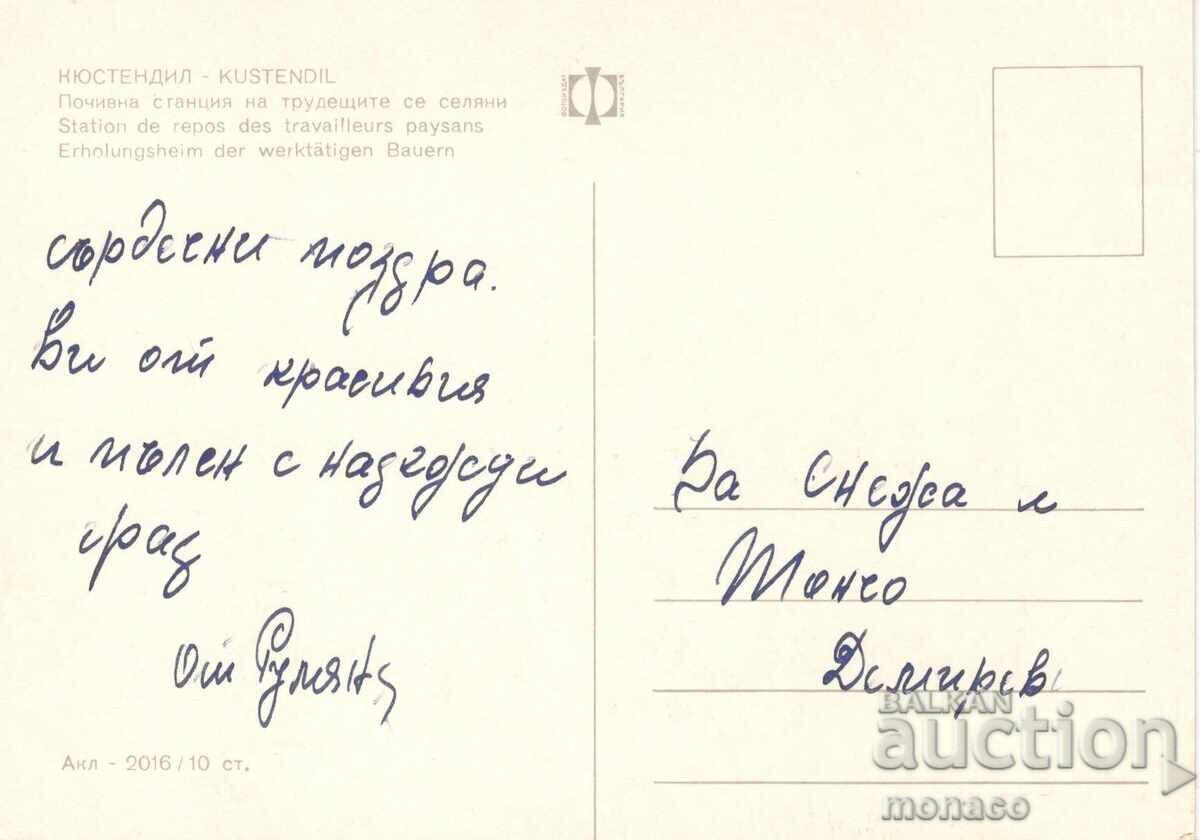 КЮСТЕНДИЛ - KUSTENDIL
Почивна станция на трудещите се селяни
Station de repos des travailleurs paysans
Erholungsheim der werktätigen Bauern
сърдечни поздра.
ви от красивия
и пълен с надежди
град
От Румяна
Акл - 2016/10 ст.
За Снежа и
Танчо
Демирев
BALKAN
auction
monaco